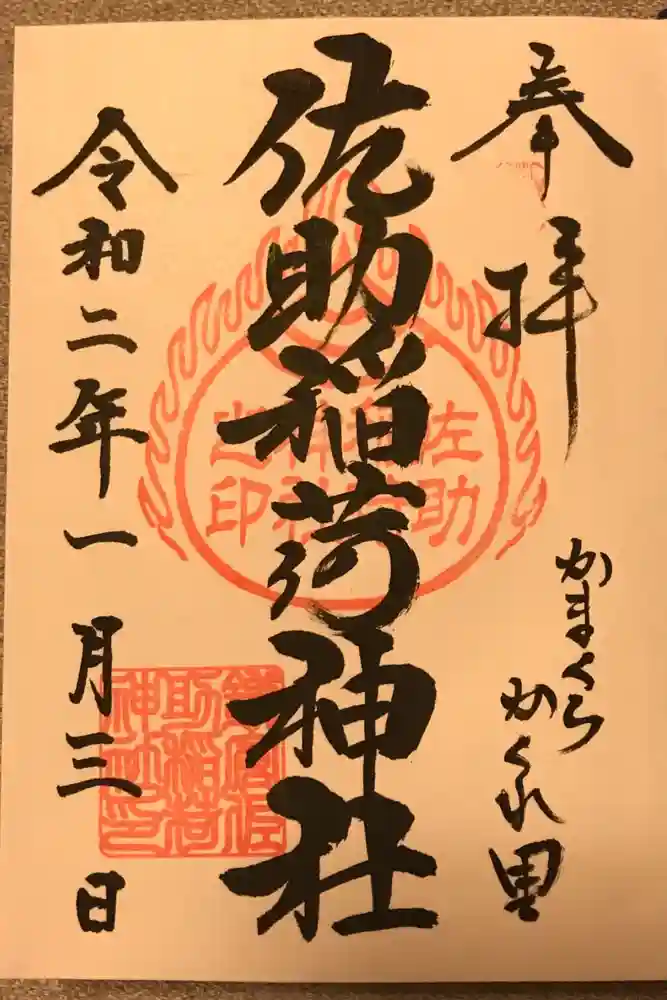 奉拝
かまくら
かくれ里
佐助稲荷神社
令和二年一月三日
佐助稲荷
神社之印
鎌倉佐
助稲荷
神社印